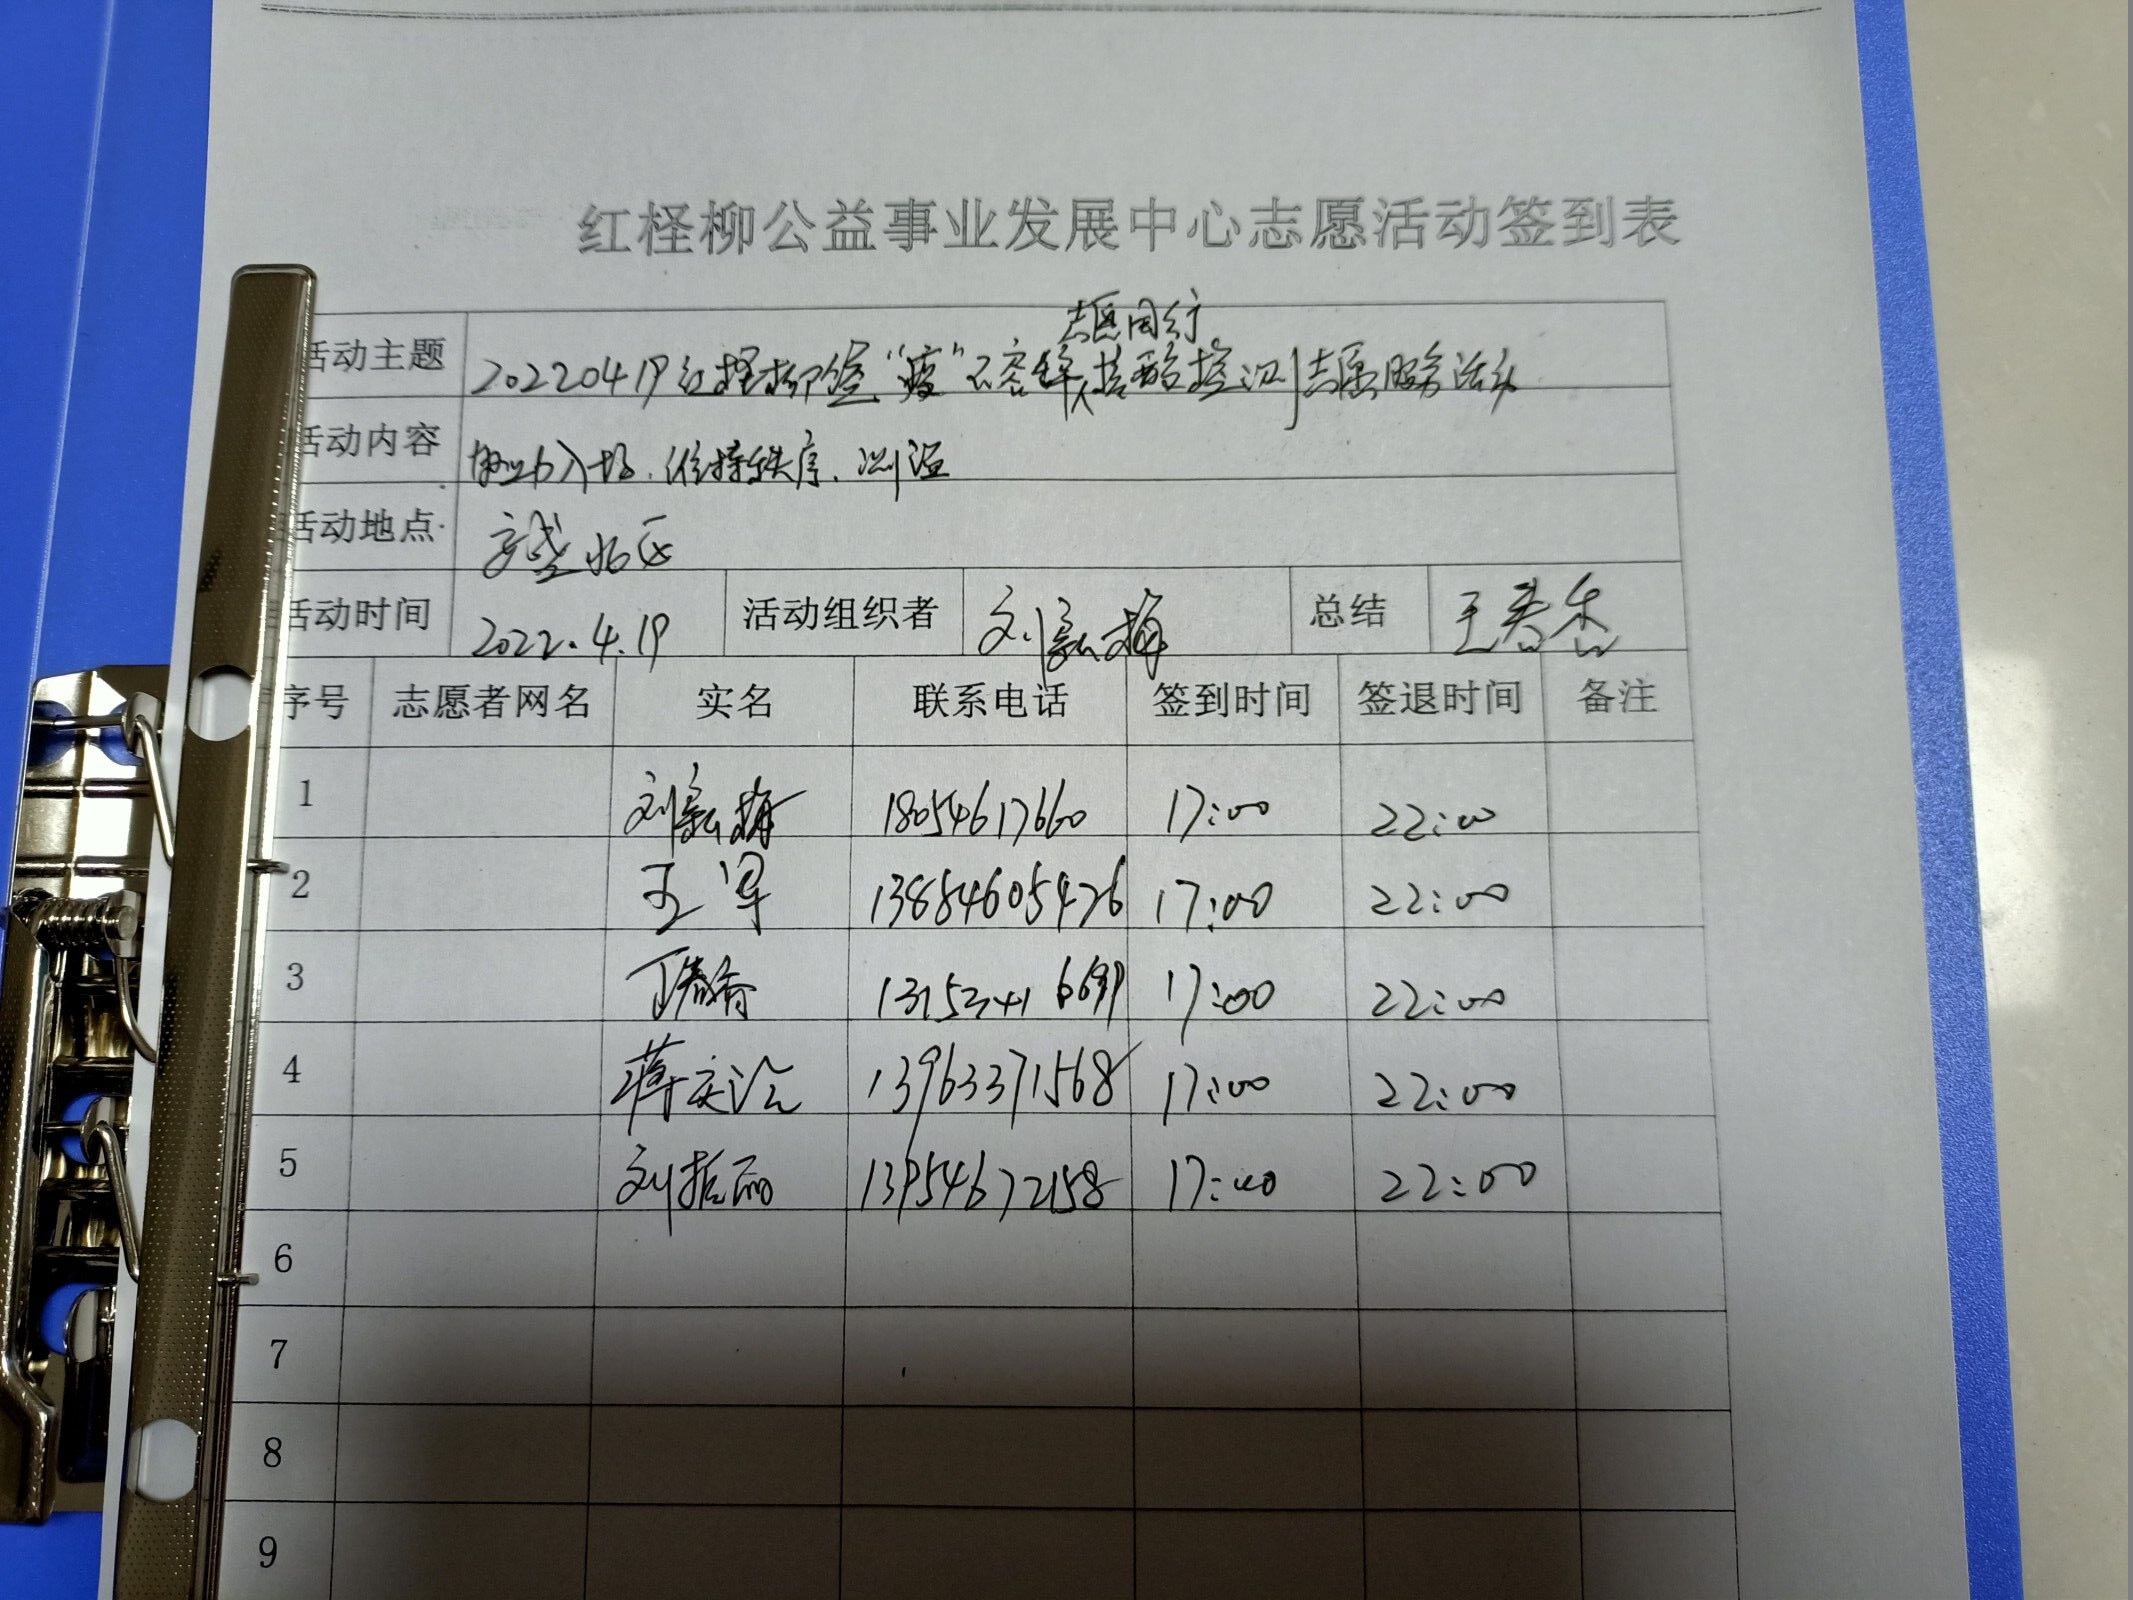 红柽柳公益事业发展中心志愿活动签到表
志愿同行
活动主题 20220419红柽柳 "疫"不容 核酸检测志愿服务活动
活动内容 协助入场、维持秩序、测温
活动地点 安盛北区
活动时间 2022.4.19 活动组织者 刘 梅 总结 王春杰
序号 志愿者网名 实名 联系电话 签到时间 签退时间 备注
1 刘 梅 18054617660 17:00 22:00
2 王军 13854605426 17:00 22:00
3 丁春香 17:00 22:00
4 蒋庆谂 13963371568 17:00 22:00
5 刘哲丽 13954672158 17:00 22:00
6
7
8
9